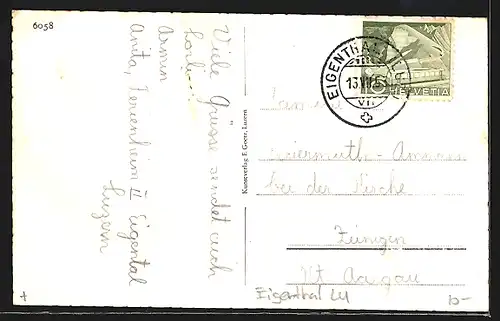 6058
Viele Grüsse sendet euch
Armin
Anita, Ferienheim II Eigental
Luzern
Kunstverlag E. Goetz, Luzern
EIGENTHAL (LU)
13.VII.53
VII
HELVETIA
bei der Kirche
Zuzgen
Kt Aargau
Eigenthal LU
10-